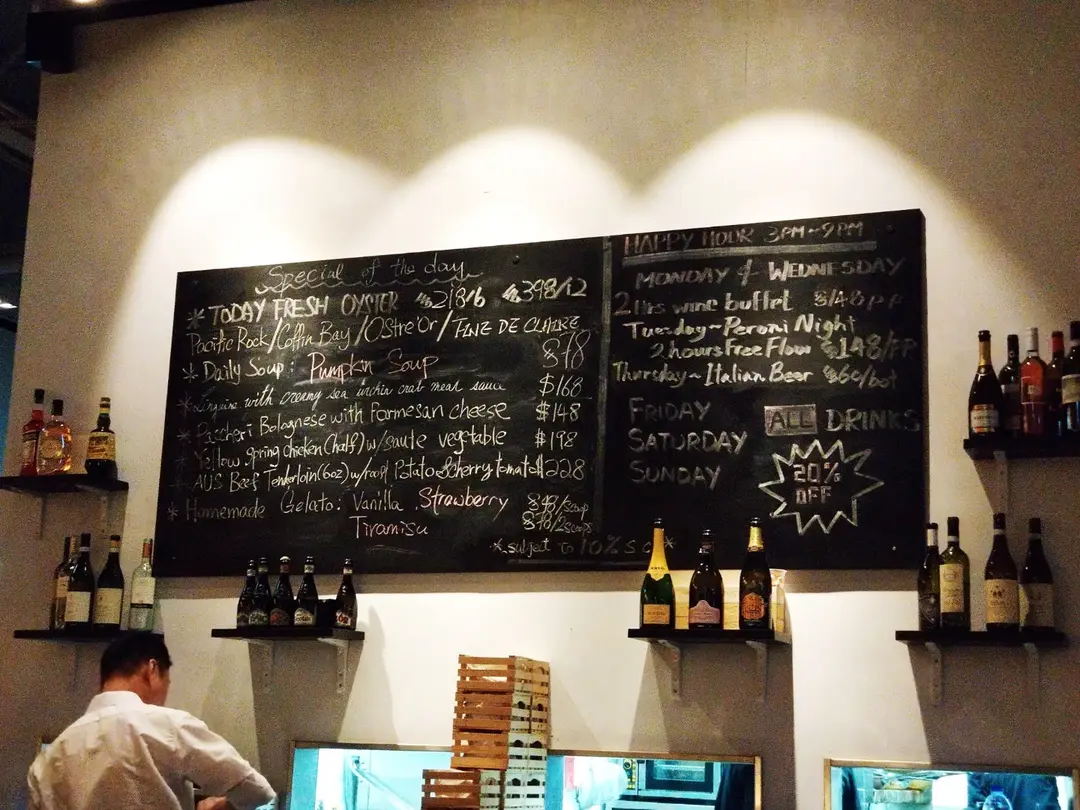 Special of the day
* TODAY FRESH OYSTER $218/6 $398/12
Pacific Rock/Coffin Bay/OStre'Or/FINE DE CLAIRE
* Daily Soup: Pumpkin Soup $78
* Linguine with creamy sea urchin crab meat sauce $168
* Paccheri Bolagnese with Parmesan cheese $148
* Yellow Spring chicken(half) w/saute vegetable $198
* AUS Beef Tenderloin(6oz) w/roast Potato&cherry tomato $228
* Homemade Gelato: Vanilla, Strawberry $48/scoop
Tiramisu $70/2scoops
*subject to 10% s.c*
HAPPY HOUR 3PM~9PM
MONDAY & WEDNESDAY
2 Hrs wine buffet $148PP
Tuesday~Peroni Night
2 hours Free Flow $148/PP
Thursday~Italian Beer $60/bot
FRIDAY
SATURDAY
SUNDAY
ALL DRINKS
20%
OFF